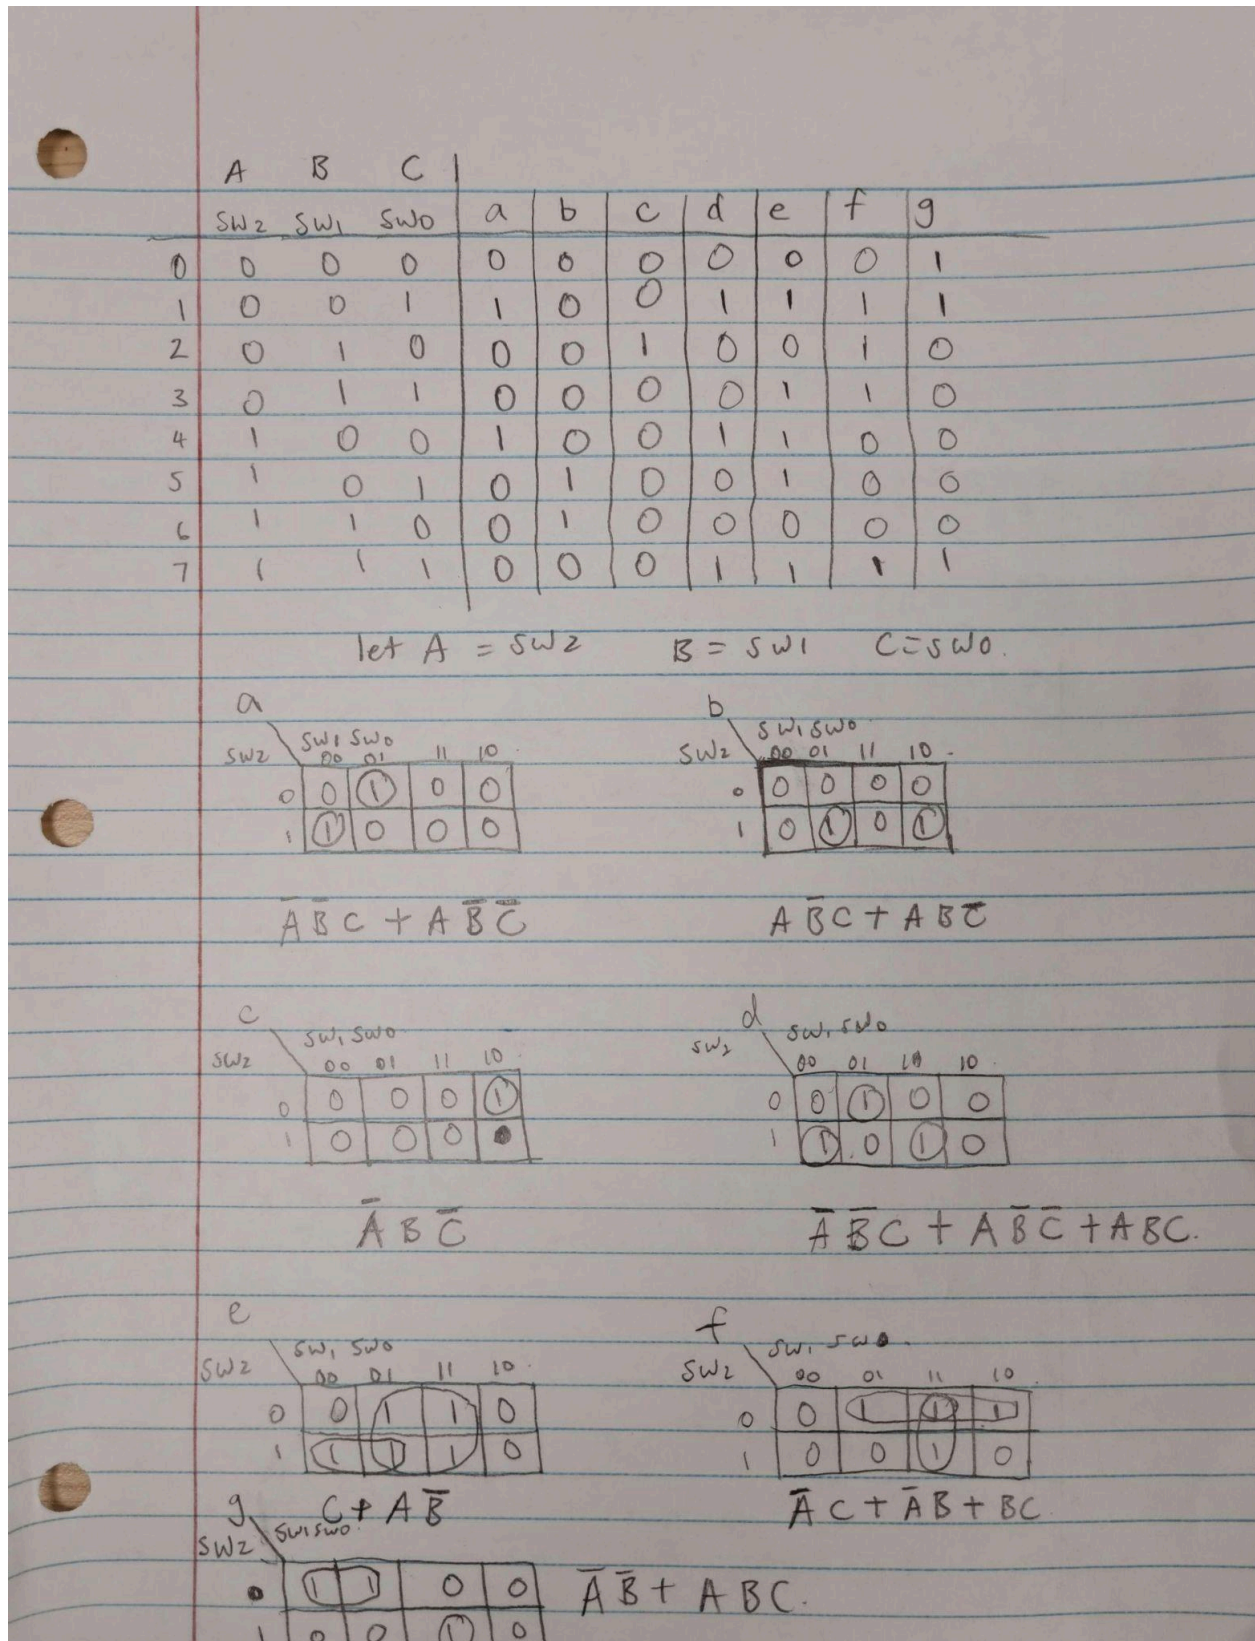 A B C
SW2 SW1 SW0 a b c d e f g
0 0 0 0 0 0 0 0 0 0 1
1 0 0 1 1 0 0 1 1 1 1
2 0 1 0 0 0 1 0 0 1 0
3 0 1 1 0 0 0 0 1 1 0
4 1 0 0 1 0 0 1 1 0 0
5 1 0 1 0 1 0 0 1 0 0
6 1 1 0 0 1 0 0 0 0 0
7 1 1 1 0 0 0 1 1 1 1
let A = SW2 B = SW1 C = SW0.
a
SW1 SW0
SW2 00 01 11 10
0 0 1 0 0
1 1 0 0 0
A̅ B̅ C + A B̅ C̅
b
SW1 SW0
SW2 00 01 11 10
0 0 0 0 0
1 0 1 0 1
A B̅ C + A B C̅
c
SW1 SW0
SW2 00 01 11 10
0 0 0 0 1
1 0 0 0
A̅ B C̅
d
SW1 SW0
SW2 00 01 11 10
0 0 1 0 0
1 1 0 1 0
A̅ B̅ C + A B̅ C̅ + A B C.
e
SW1 SW0
SW2 00 01 11 10
0 0 1 1 0
1 1 1 1 0
C + A B̅
f
SW1 SW0
SW2 00 01 11 10
0 0 1 1 1
1 0 0 1 0
A̅ C + A̅ B + B C
g
SW1 SW0
SW2
1 1 0 0
1 0 0 1 0
A̅ B̅ + A B C.